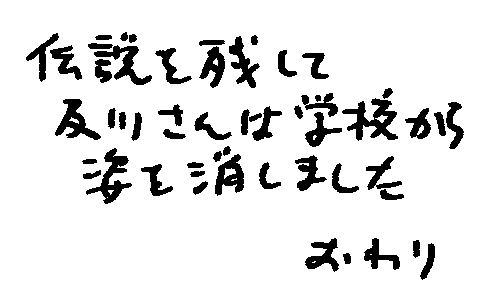 伝説を残して
反川さんは学校から
姿を消しました
おわり